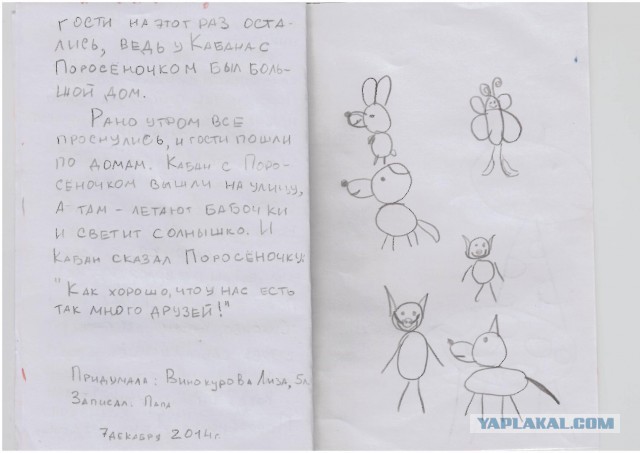 гости на этот раз оста-
лись, ведь у Кабана с
Поросёночком был боль-
шой дом.
Рано утром все
проснулись, и гости пошли
по домам. Кабан с Поро-
сёночком вышли на улицу,
а там - летают бабочки
и светит солнышко. И
Кабан сказал Поросёночку:
"Как хорошо, что у нас есть
так много друзей!"
Придумала: Винокурова Лиза, 5л
Записал: Папа
7 декабря 2014г.
YAPLAKAL.COM